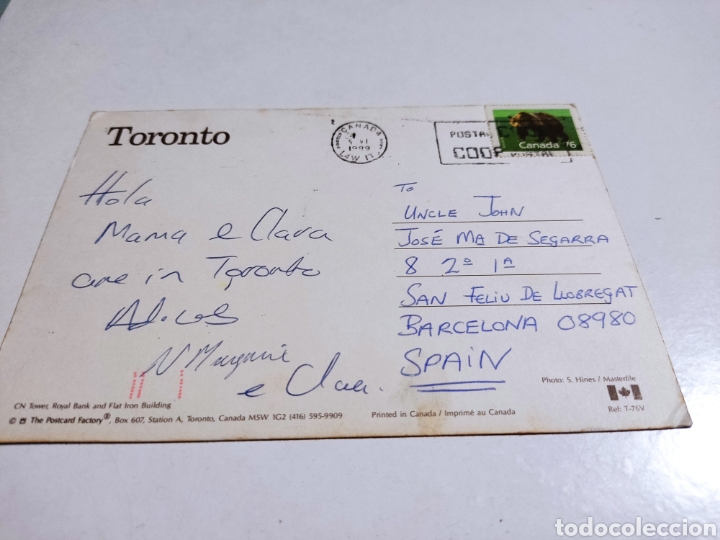 Toronto
CANADA
1989
POSTAL CODE
CODE POSTAL
Canada 76
Hola
Mama e Clara
are in Toronto
e Clara.
To
UNCLE JOHN
JOSÉ Mª DE SEGARRA
8 2º 1ª
SAN FELIU DE LLOBREGAT
BARCELONA 08980
SPAIN
Photo: S. Hines / Masterfile
CN Tower, Royal Bank and Flat Iron Building
© The Postcard Factory®, Box 607, Station A, Toronto, Canada M5W 1G2 (416) 595-9909
Printed in Canada / Imprimé au Canada
Ref: T-76V
todocoleccion